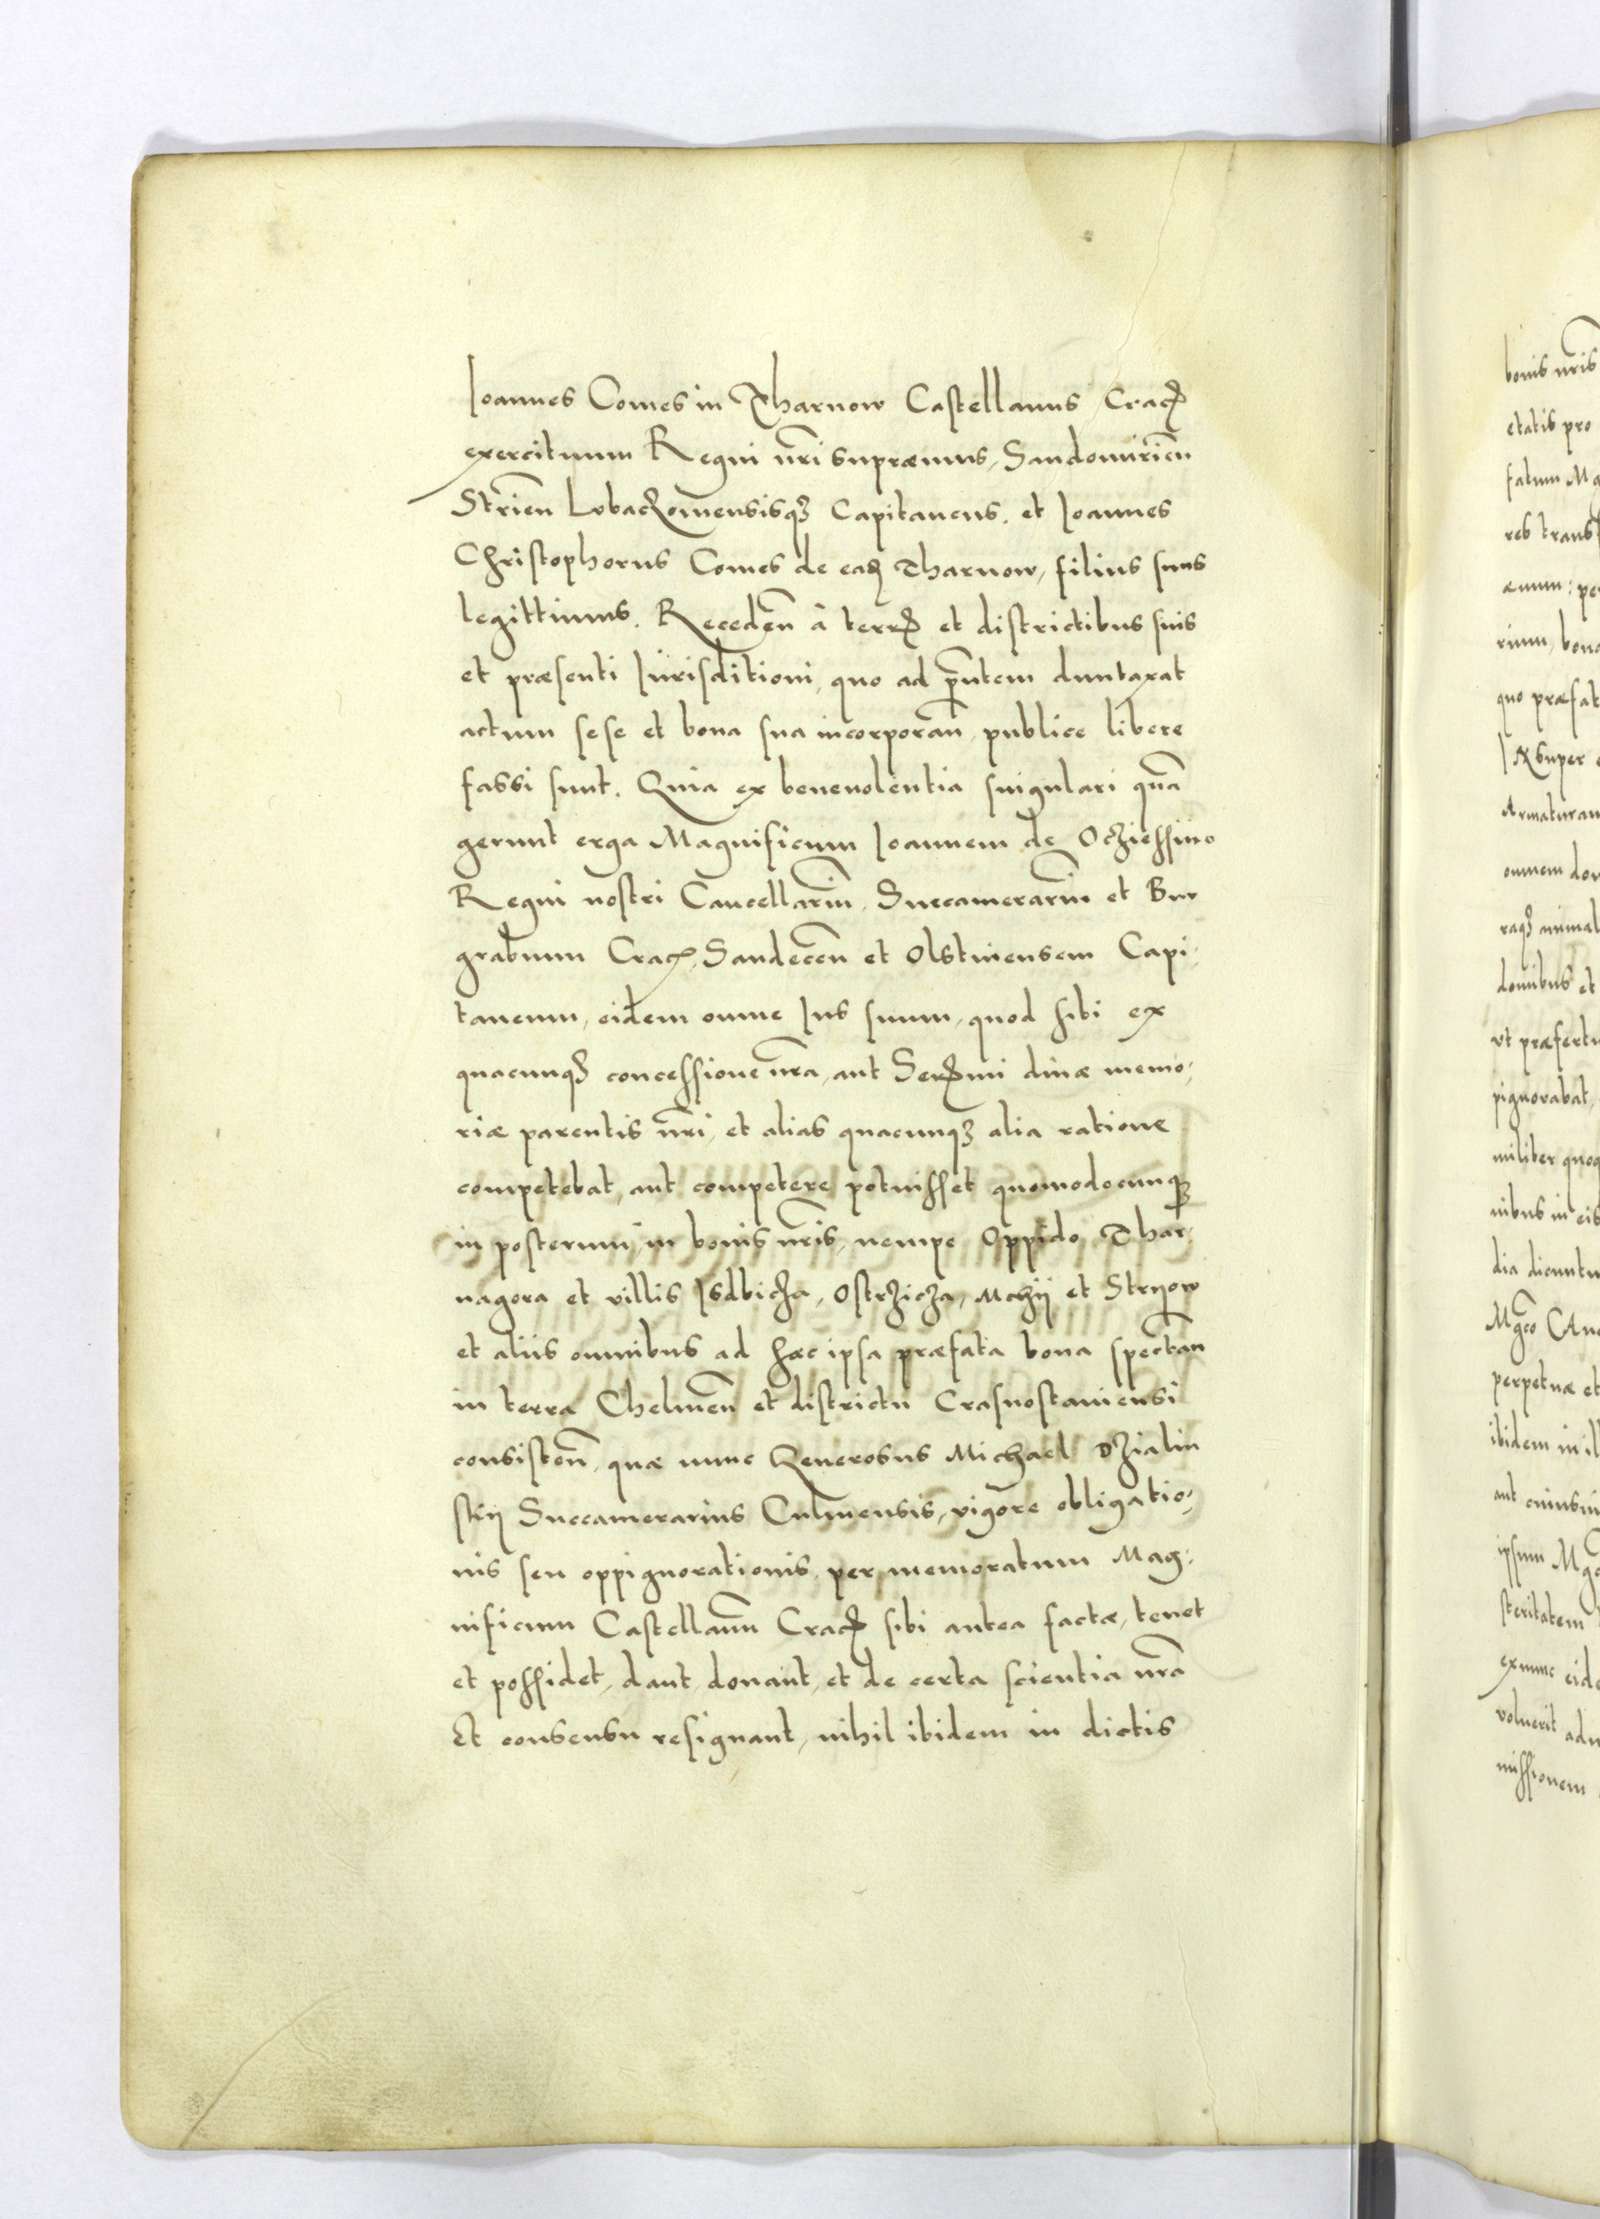 Ioannes Comes in Tharnow Castellanus Cracꝭ
exercituum Regni nr̃i supræmus, Sandomirień
Strień Lubaczowiensisqꝫ Capitaneus, et Ioannes
Christophorus Comes de eadꝫ Tharnow, filius suus
legittimus. Recedeñ à terrꝭ et districtibus suis
et præsenti Iurisditioni, quo ad p̃ntem duntaxat
actum sese et bona sua incorporañ, publice libere
fassi sunt. Quia ex beneuolentia singulari quã
gerunt erga Magnificum Ioannem de Oczieſſino
Regni nostri Cancellariũ, Succamerariũ et Bur
grabium Cracꝭ, Sandeceñ et Olstinensem Capi,
taneum, eidem omne Ius suum, quod sibi ex
quacunqꝫ concessione nr̃a, aut Serꝭmi diuæ memo,
riæ parentis nr̃i, et alias quacunqꝫ alia ratione
competebat, aut competere potuisset quomodocunqꝫ
in posterum, in bonis nr̃is, nempe Oppido Thar,
nagora et villis Isdbicza, Ostrzicza, Mchÿ et Strÿow
et aliis omnibus ad hæc ipsa præfata bona spectañ
in terra Chelmeñ et districtu Crasnostaniensi
consisteñ, quæ nunc Generosus Michael Dzialin
skÿ Succamerarius Culmensis, vigore obligatio,
nis seu oppignorationis, per memoratum Mag,
nificum Castellanũ Cracꝭ sibi antea factæ, tenet
et possidet, dant, donant, et de certa scientia nr̃a
Et consensu resignant, nihil ibidem in dictis
bonis nr̃is
etatis pro
res trans
rium, bona
quo præfat
Armaturam
omnem dom
raqꝫ animal
domibus et
vt præfertu
pignorabat,
militer quoq
nibus in eis
dia dicuntu
perpetuæ et
ibidem in il
steritatem
exnunc eide
voluerit adu
missionem